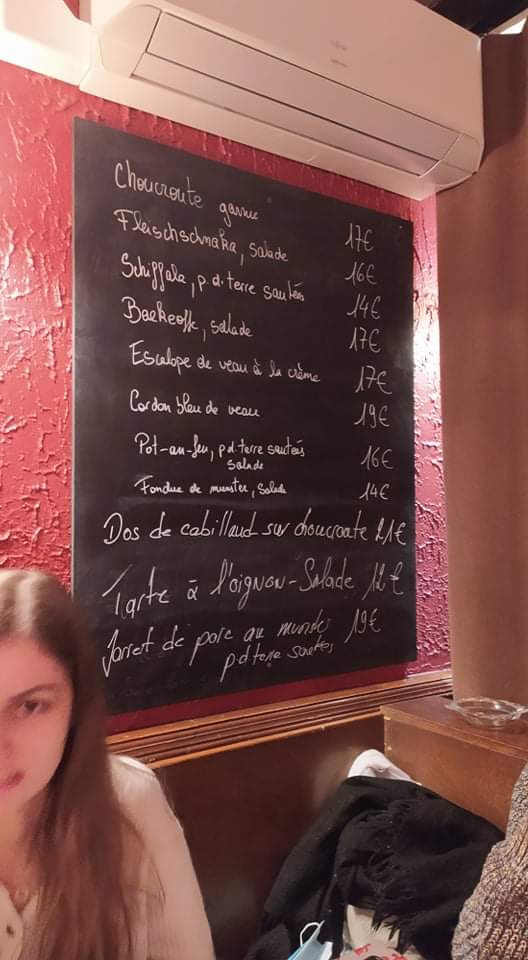 FUJITSU
Choucroute garnie 17€
Fleischschnaka, salade 16€
Schiffala, p.d.terre sautées 14€
Baekeoffe, salade 17€
Escalope de veau à la crème 17€
Cordon bleu de veau 19€
Pot-au-feu, p.d.terre sautées 16€
salade
Fondue de munster, salade 14€
Dos de cabillaud sur choucroute 21€
Tarte à l'oignon-Salade 12€
Jarret de porc au munster 19€
p.d.terre sautées